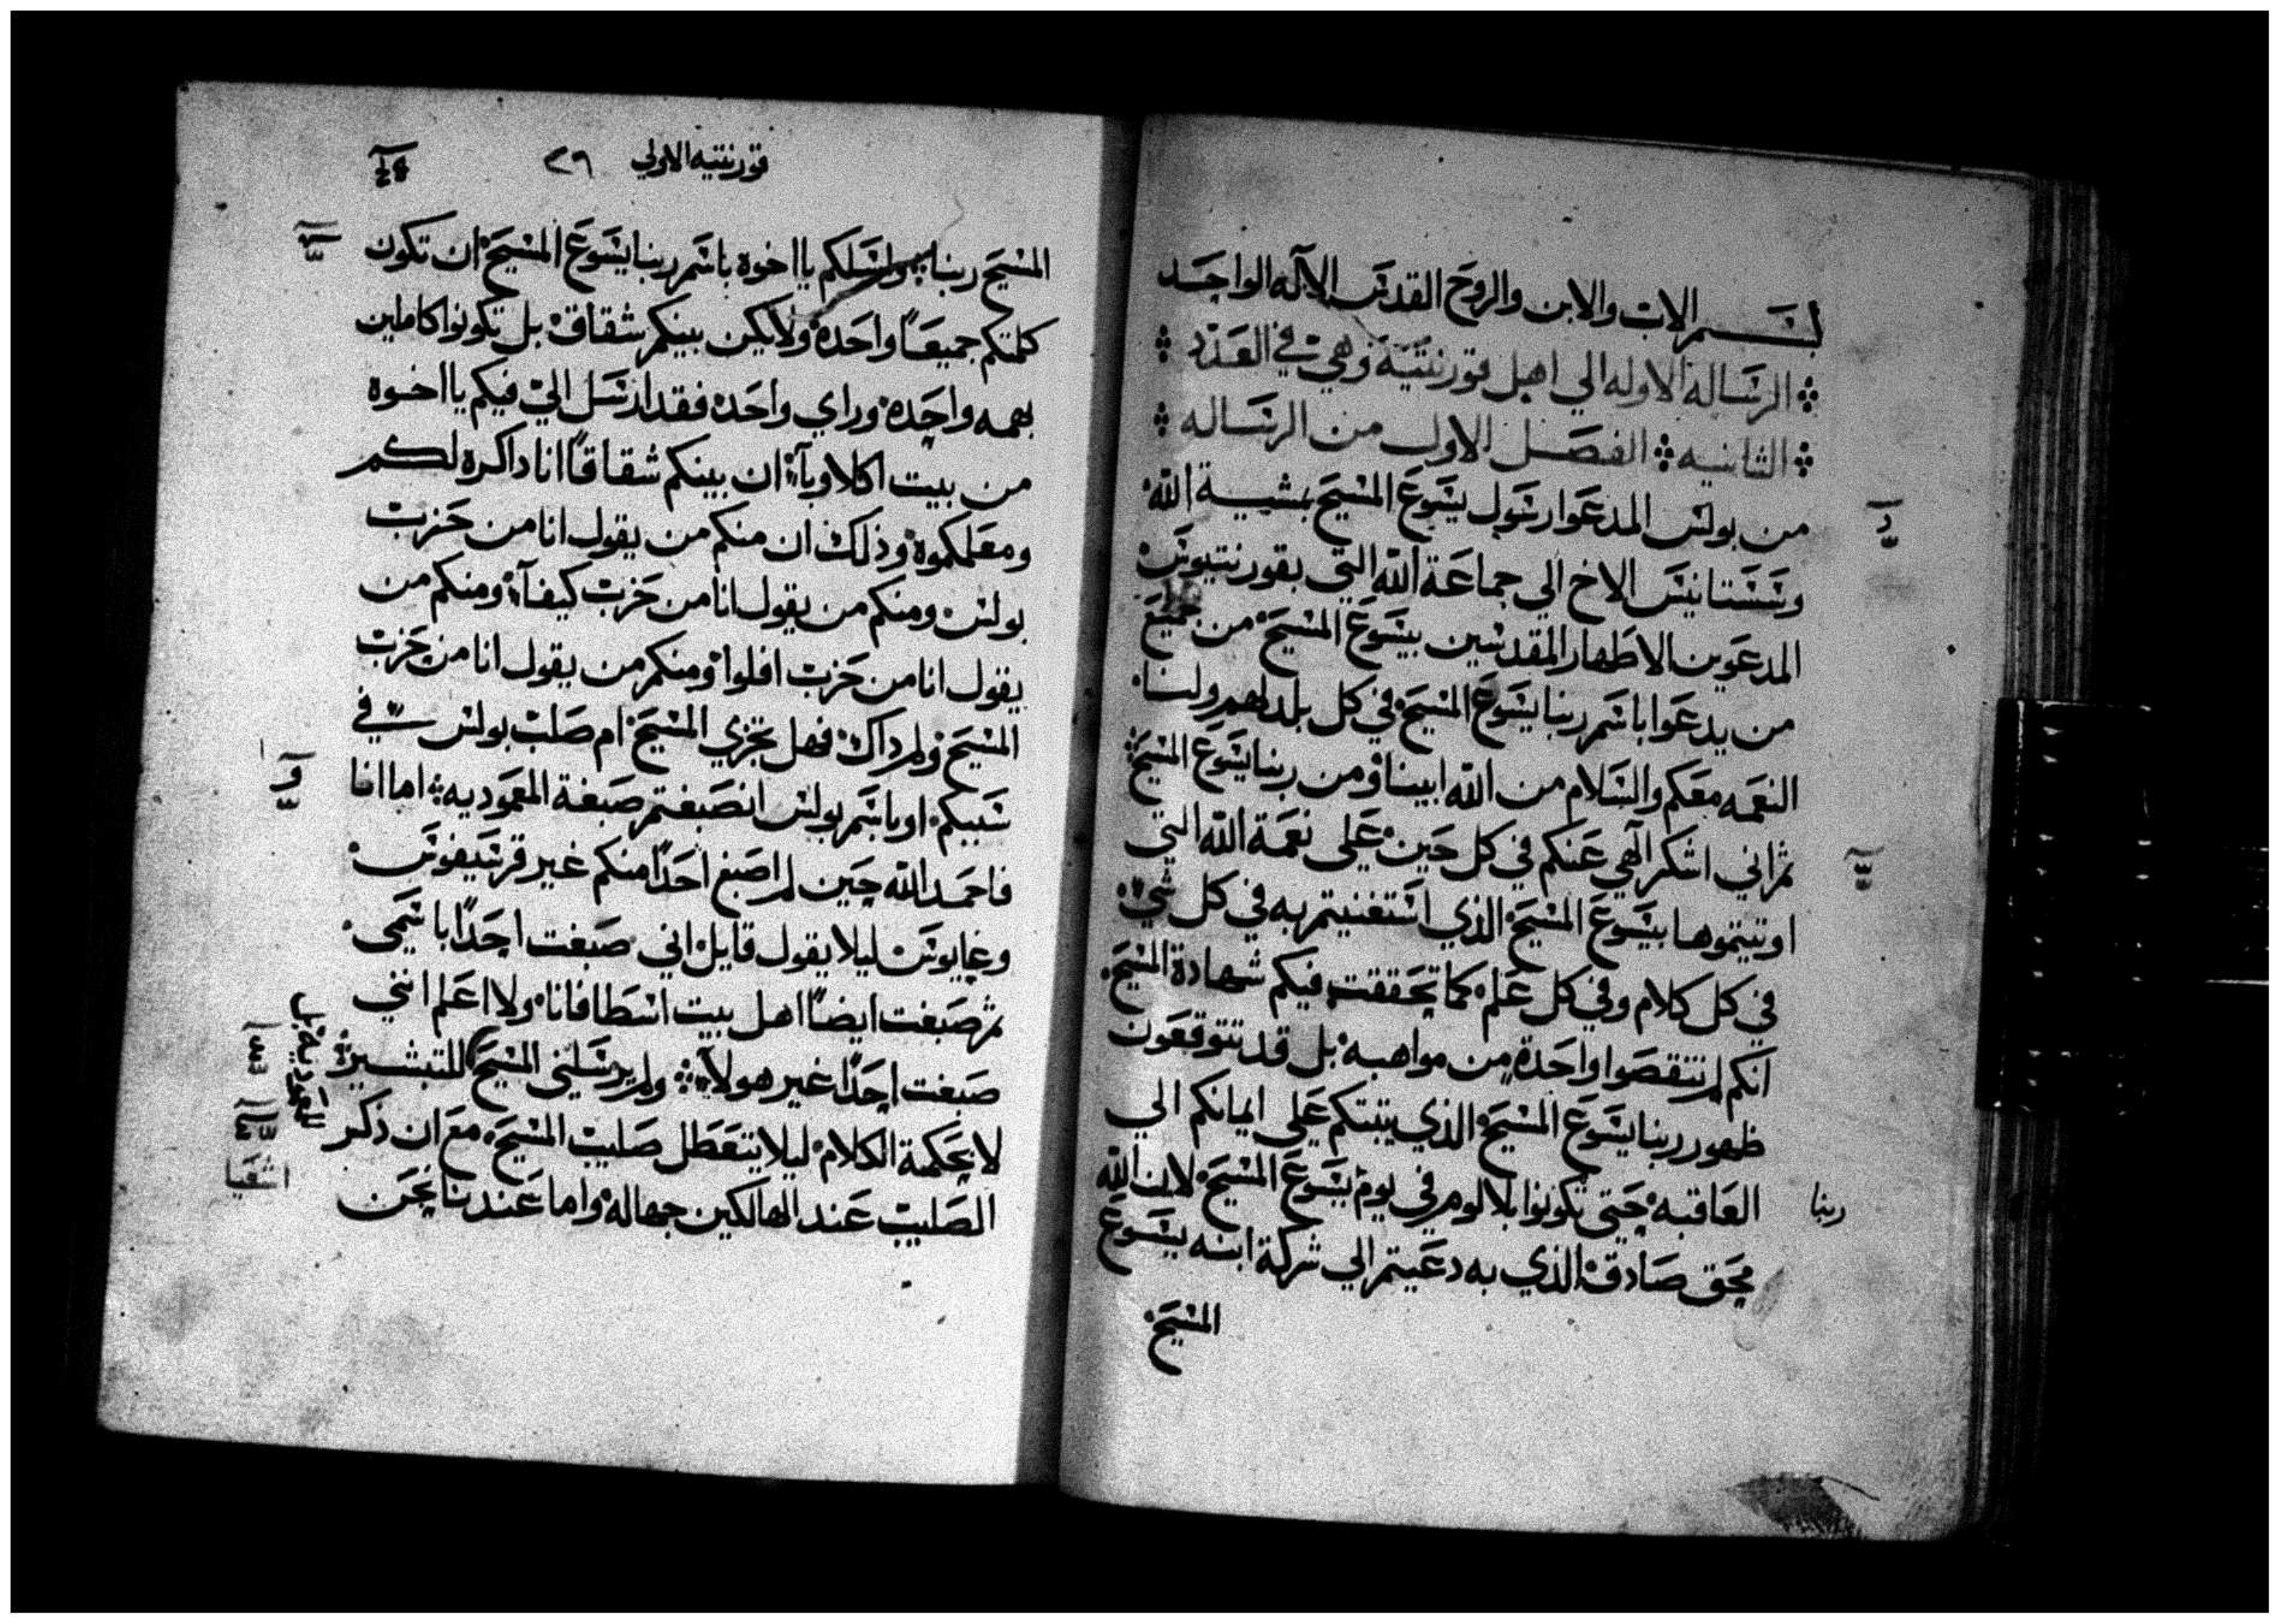 بسم الاب والابن والروح القدس الاله الواحد
الرساله الاوله الي اهل قورنتيه وهي في العدد
الثانيه الفصل الاول من الرساله
من بولس المدعوا رسول يسوع المسيح بمشيية الله
وسستانيس الاخ الي جماعة الله التي بقورنتيوس
المدعوين الاطهار المقدسين بيسوع المسيح من جميع
من يدعوا باسم ربنا يسوع المسيح في كل بلد لهم ولنا
النعمه معكم والسلام من الله ابينا ومن ربنا يسوع المسيح
ثم اني اشكر الهي عنكم في كل حين علي نعمة الله التي
اوتيتموها بيسوع المسيح الذي استغنيتم به في كل شي
في كل كلام وفي كل علم كما تحققت فيكم شهادة المسيح
انكم لم تنقصوا واحدة من مواهبه بل قد تتوقعون
ظهور ربنا يسوع المسيح الذي يثبتكم علي ايمانكم الي
العاقبه حتي تكونوا بلا لوم في يوم يسوع المسيح لان الله
ربنا
محق صادق الذي به دعيتم الي شركة ابنه يسوع
المسيح
قورنتيه الاولي ٢٩
المسيح ربنا واسلكم يا اخوه باسم ربنا يسوع المسيح ان تكون
كلمتكم جميعًا واحدة ولا يكن بينكم شقاق بل تكونوا كاملين
بهمه واحده وراي واحد فقد ارسل الي فيكم يا اخوه
من بيت اكلاويا ان بينكم شقاقًا انا داكره لكم
ومعلمكموه وذلك ان منكم من يقول انا من حزب
بولس ومنكم من يقول انا من حزب كيفا ومنكم من
يقول انا من حزب افلوا ومنكم من يقول انا من حزب
المسيح ولم داك فهل تجزي المسيح ام صلب بولس في
سببكم او باسم بولس انصبغتم صبغة المعموديه اما انا
فاحمد الله حين لم اصبغ احدًا منكم غير قرسيفوس
وغايوس ليلا يقول قايل اني صبغت احدًا باسمي
ثم صبغت ايضًا اهل بيت اسطافانا ولا اعلم انني
صبغت احدًا غير هولا ولم يرسلني المسيح للتبشير
لا بحكمة الكلام ليلا يتعطل صليب المسيح مع ان ذكر
اشعيا
الصليب عند الهالكين جهاله واما عندنا نحن